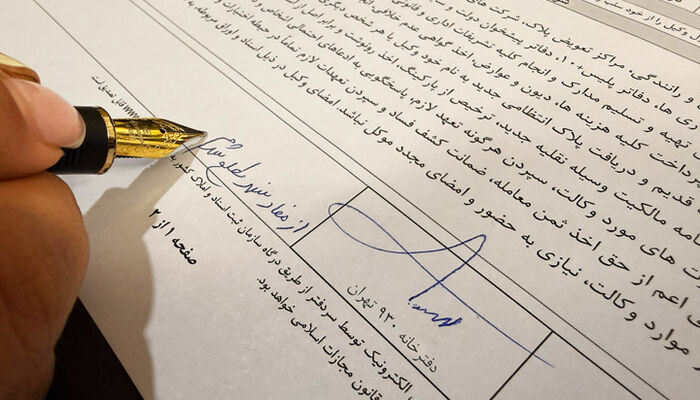 وکیل را از خود سلب
و رانندگی، مراکز تعویض پلاک، شرکت های
ری ها، دفاتر پلیس+۱۰، دفاتر پیشخوان دولت و
تهیه و تسلیم مدارک و انجام کلیه تشریفات اداری و قانونی
پرداخت کلیه هزینه ها، دیون و عوارض، اخذ گواهی عدم خلافی
قدیم و دریافت پلاک انتظامی جدید به نام خود وکیل یا هر شخص دیگری
نامه مالکیت وسیله نقلیه جدید، ترخیص از پارکینگ، اخذ رونوشت و
ت های مورد وکالت، سپردن هرگونه تعهد لازم، پاسخگویی به ادعاهای احتمالی اشخاص
ی اعم از حق اخذ ثمن معامله، ضمانت کشف فساد و سپردن تعهدات لازم تماماً در حیطه اختیارات
موارد وکالت، نیازی به حضور و امضای مجدد موکل نباشد. امضای وکیل در ذیل اسناد و اوراق مربوطه به
قابل تصدیق است
از مفاد سند مطلع شدم
دفترخانه ۹۳۰ تهران
الکترونیک توسط سردفتر از طریق درگاه سازمان ثبت اسناد و املاک کشور به
قانون مجازات اسلامی خواهد بود.
صفحه ۱ از ۲